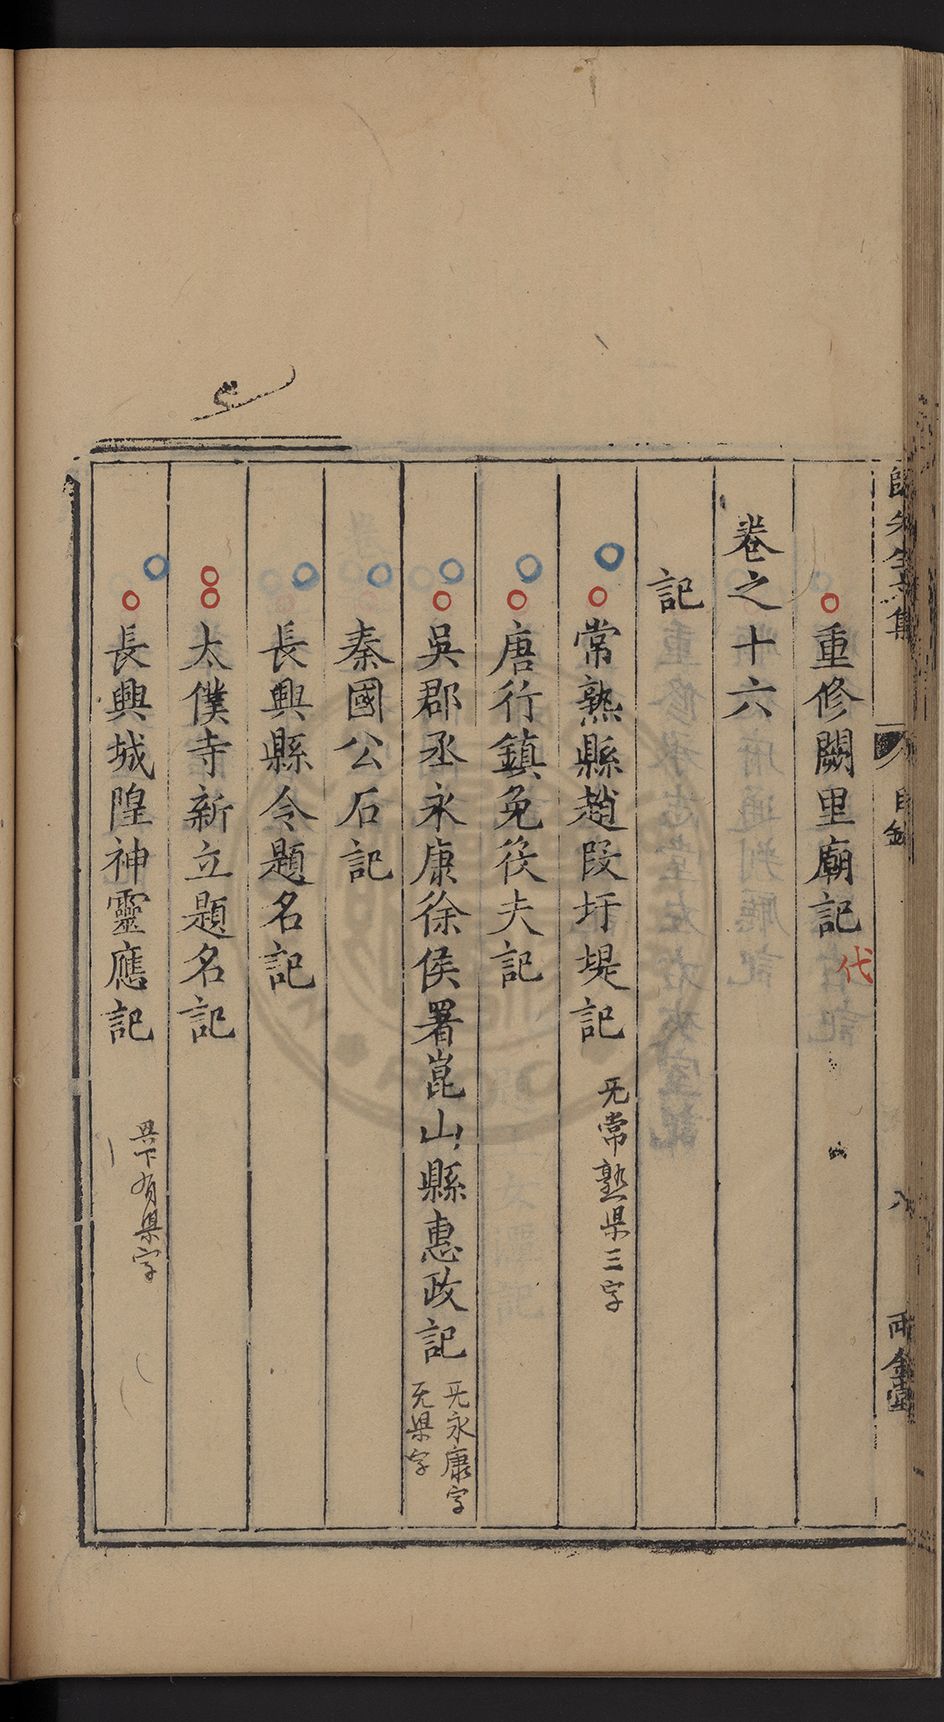 重修闕里廟記 代
卷之十六
記
常熟縣趙段圩堤記 无常熟県三字
唐行鎮免役夫記
吳郡丞永康徐侯署崑山縣惠政記 无永康字
无県字
秦國公石記
長興縣令題名記
太僕寺新立題名記
長興城隍神靈應記 興下有県字